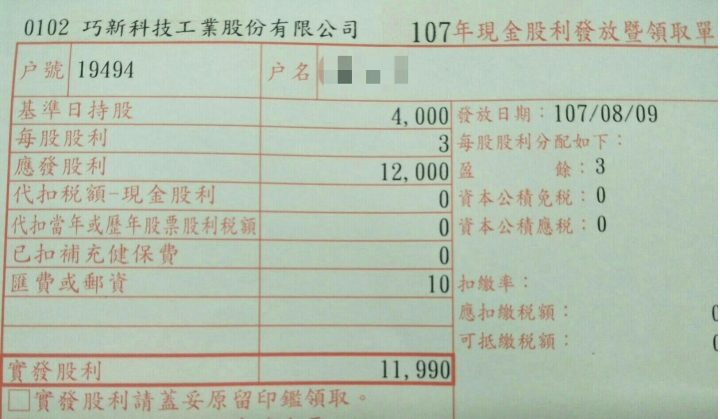 0102 巧新科技工業股份有限公司 107年現金股利發放暨領取單
戶號 19494 戶名
基準日持股 4,000 發放日期：107/08/09
每股股利 3 每股股利分配如下：
應發股利 12,000 盈餘：3
代扣稅額-現金股利 0 資本公積免稅：0
代扣當年或歷年股票股利稅額 0 資本公積應稅：0
已扣補充健保費 0
匯費或郵資 10 扣繳率：
應扣繳稅額：
可抵繳稅額：
實發股利 11,990
□實發股利請蓋妥原留印鑑領取。